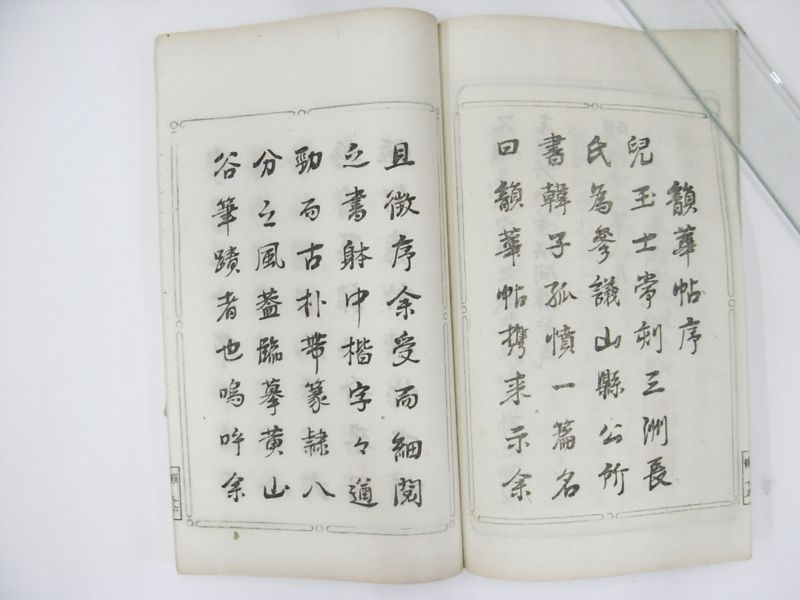 韻華帖序
兒玉士常刻三洲長
氏為參議山縣公所
書韓子孤憤一篇名
曰韻華帖携来示余
且徴序余受而細閲
之書躰中楷字々遒
勁而古朴帶篆隷八
分之風蓋臨摹黄山
谷筆蹟者也嗚呼余